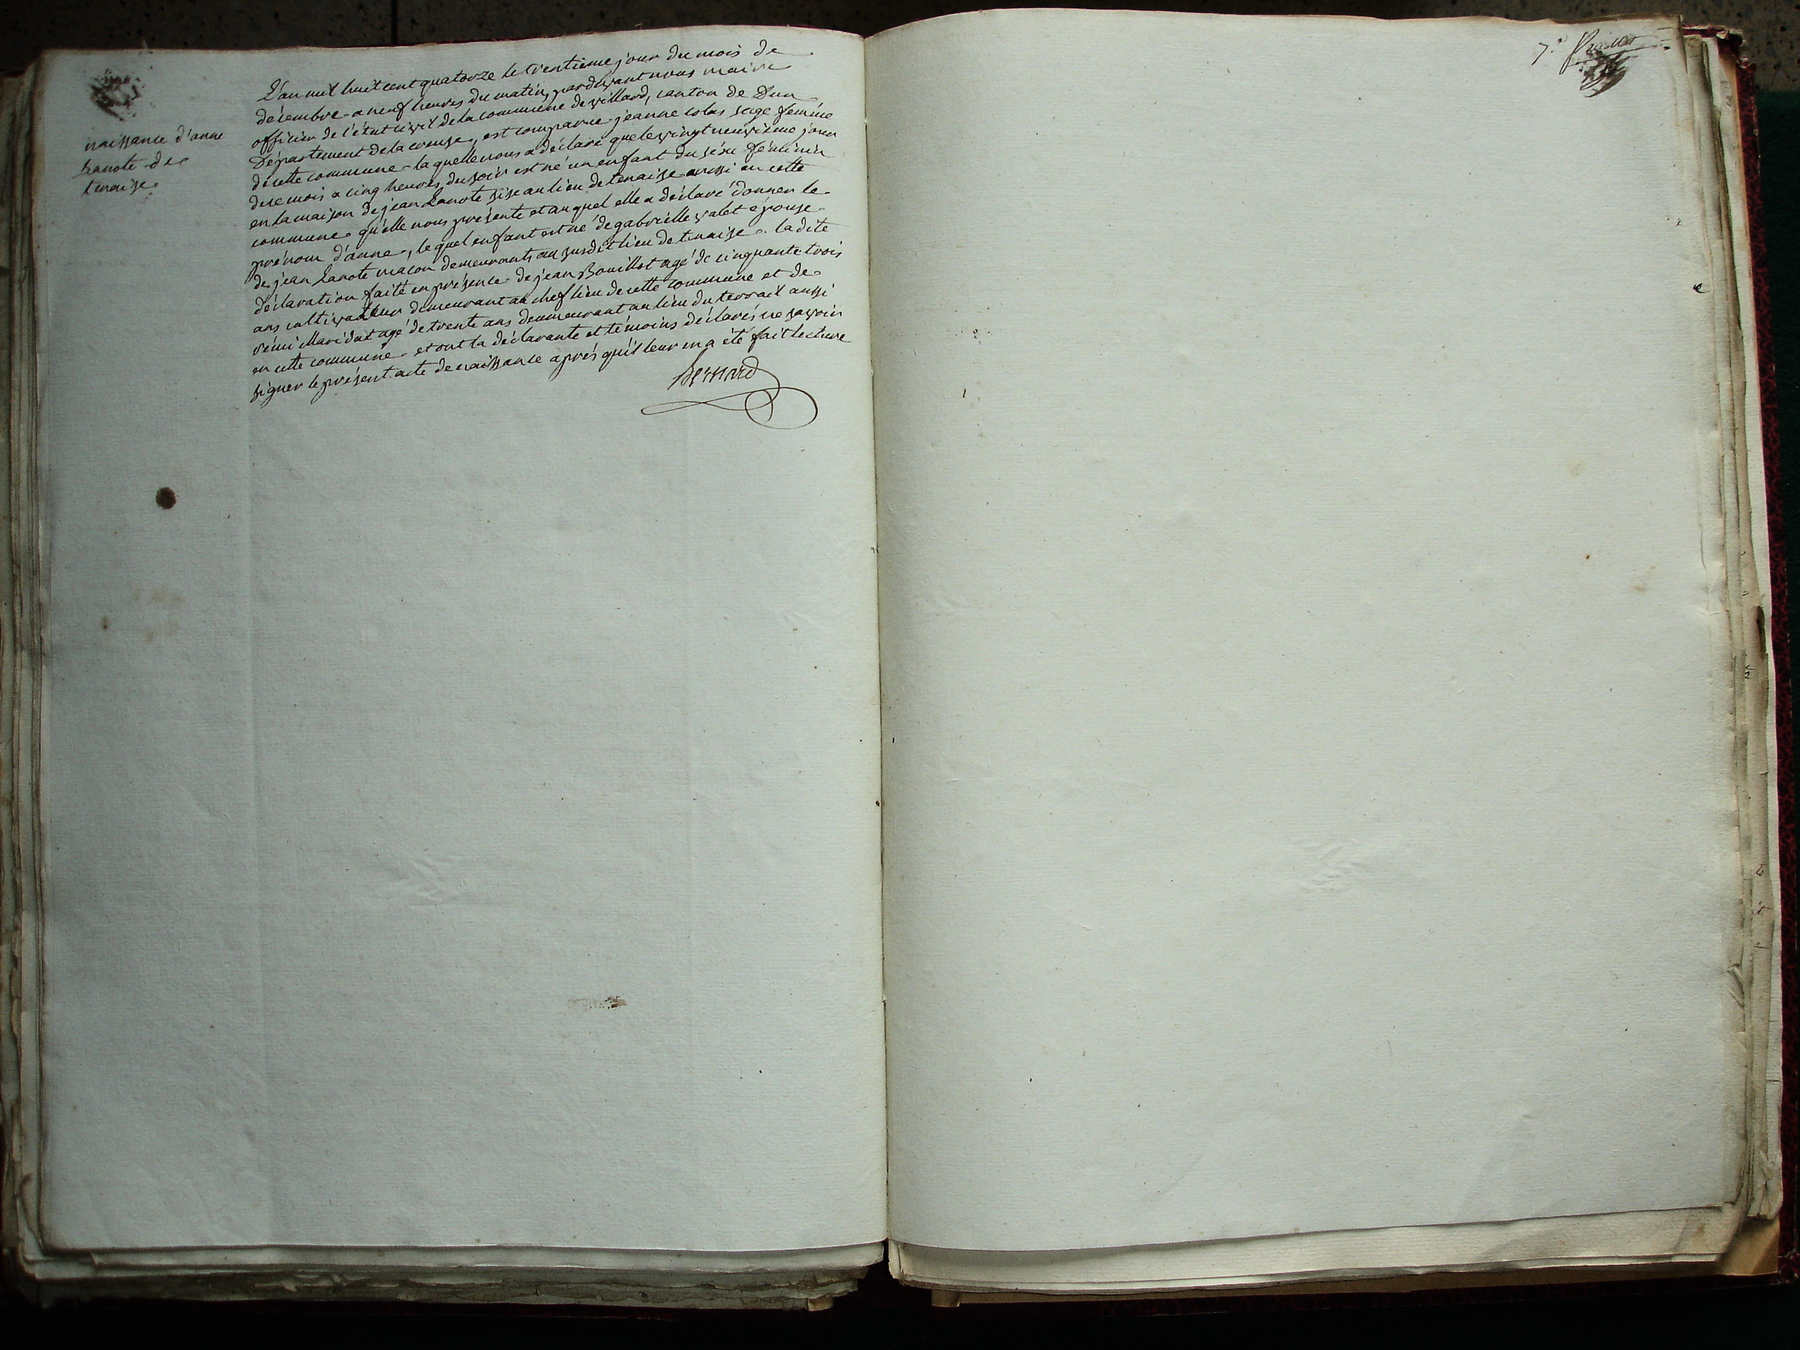 naissance d'anne
Lanote de
tenaise
L'an mil huit cent quatorze le trentieme jour du mois de
decembre a neuf heures du matin, pardevant nous maire
officier de l'état civil de la commune de villard, canton de Dun
Département de la creuse, est comparue jeanne colas sage femme
de cette commune laquelle nous a déclaré que le vingt neuvieme jour
de ce mois a cinq heures du soir est né un enfant du sexe féminin
en la maison de jean Lanote sise au lieu de tenaise aussi en cette
commune qu'elle nous présente et auquel elle a déclaré donner le
prénom d'anne, le quel enfant est né de gabrielle valet épouse
de jean Lanote macon demeurants au susdit lieu de tenaise. la dite
déclaration faite en présence de jean Bouillot agé de cinquante trois
ans cultivateur demeurant au chef lieu de cette commune et de
rémi Maridat agé de trente ans demeurant au lieu du terrail aussi
en cette commune et ont la déclarante et témoins déclarés ne savoir
signer le présent acte de naissance après qu'il leur en a été fait lecture
Bernard
7.e